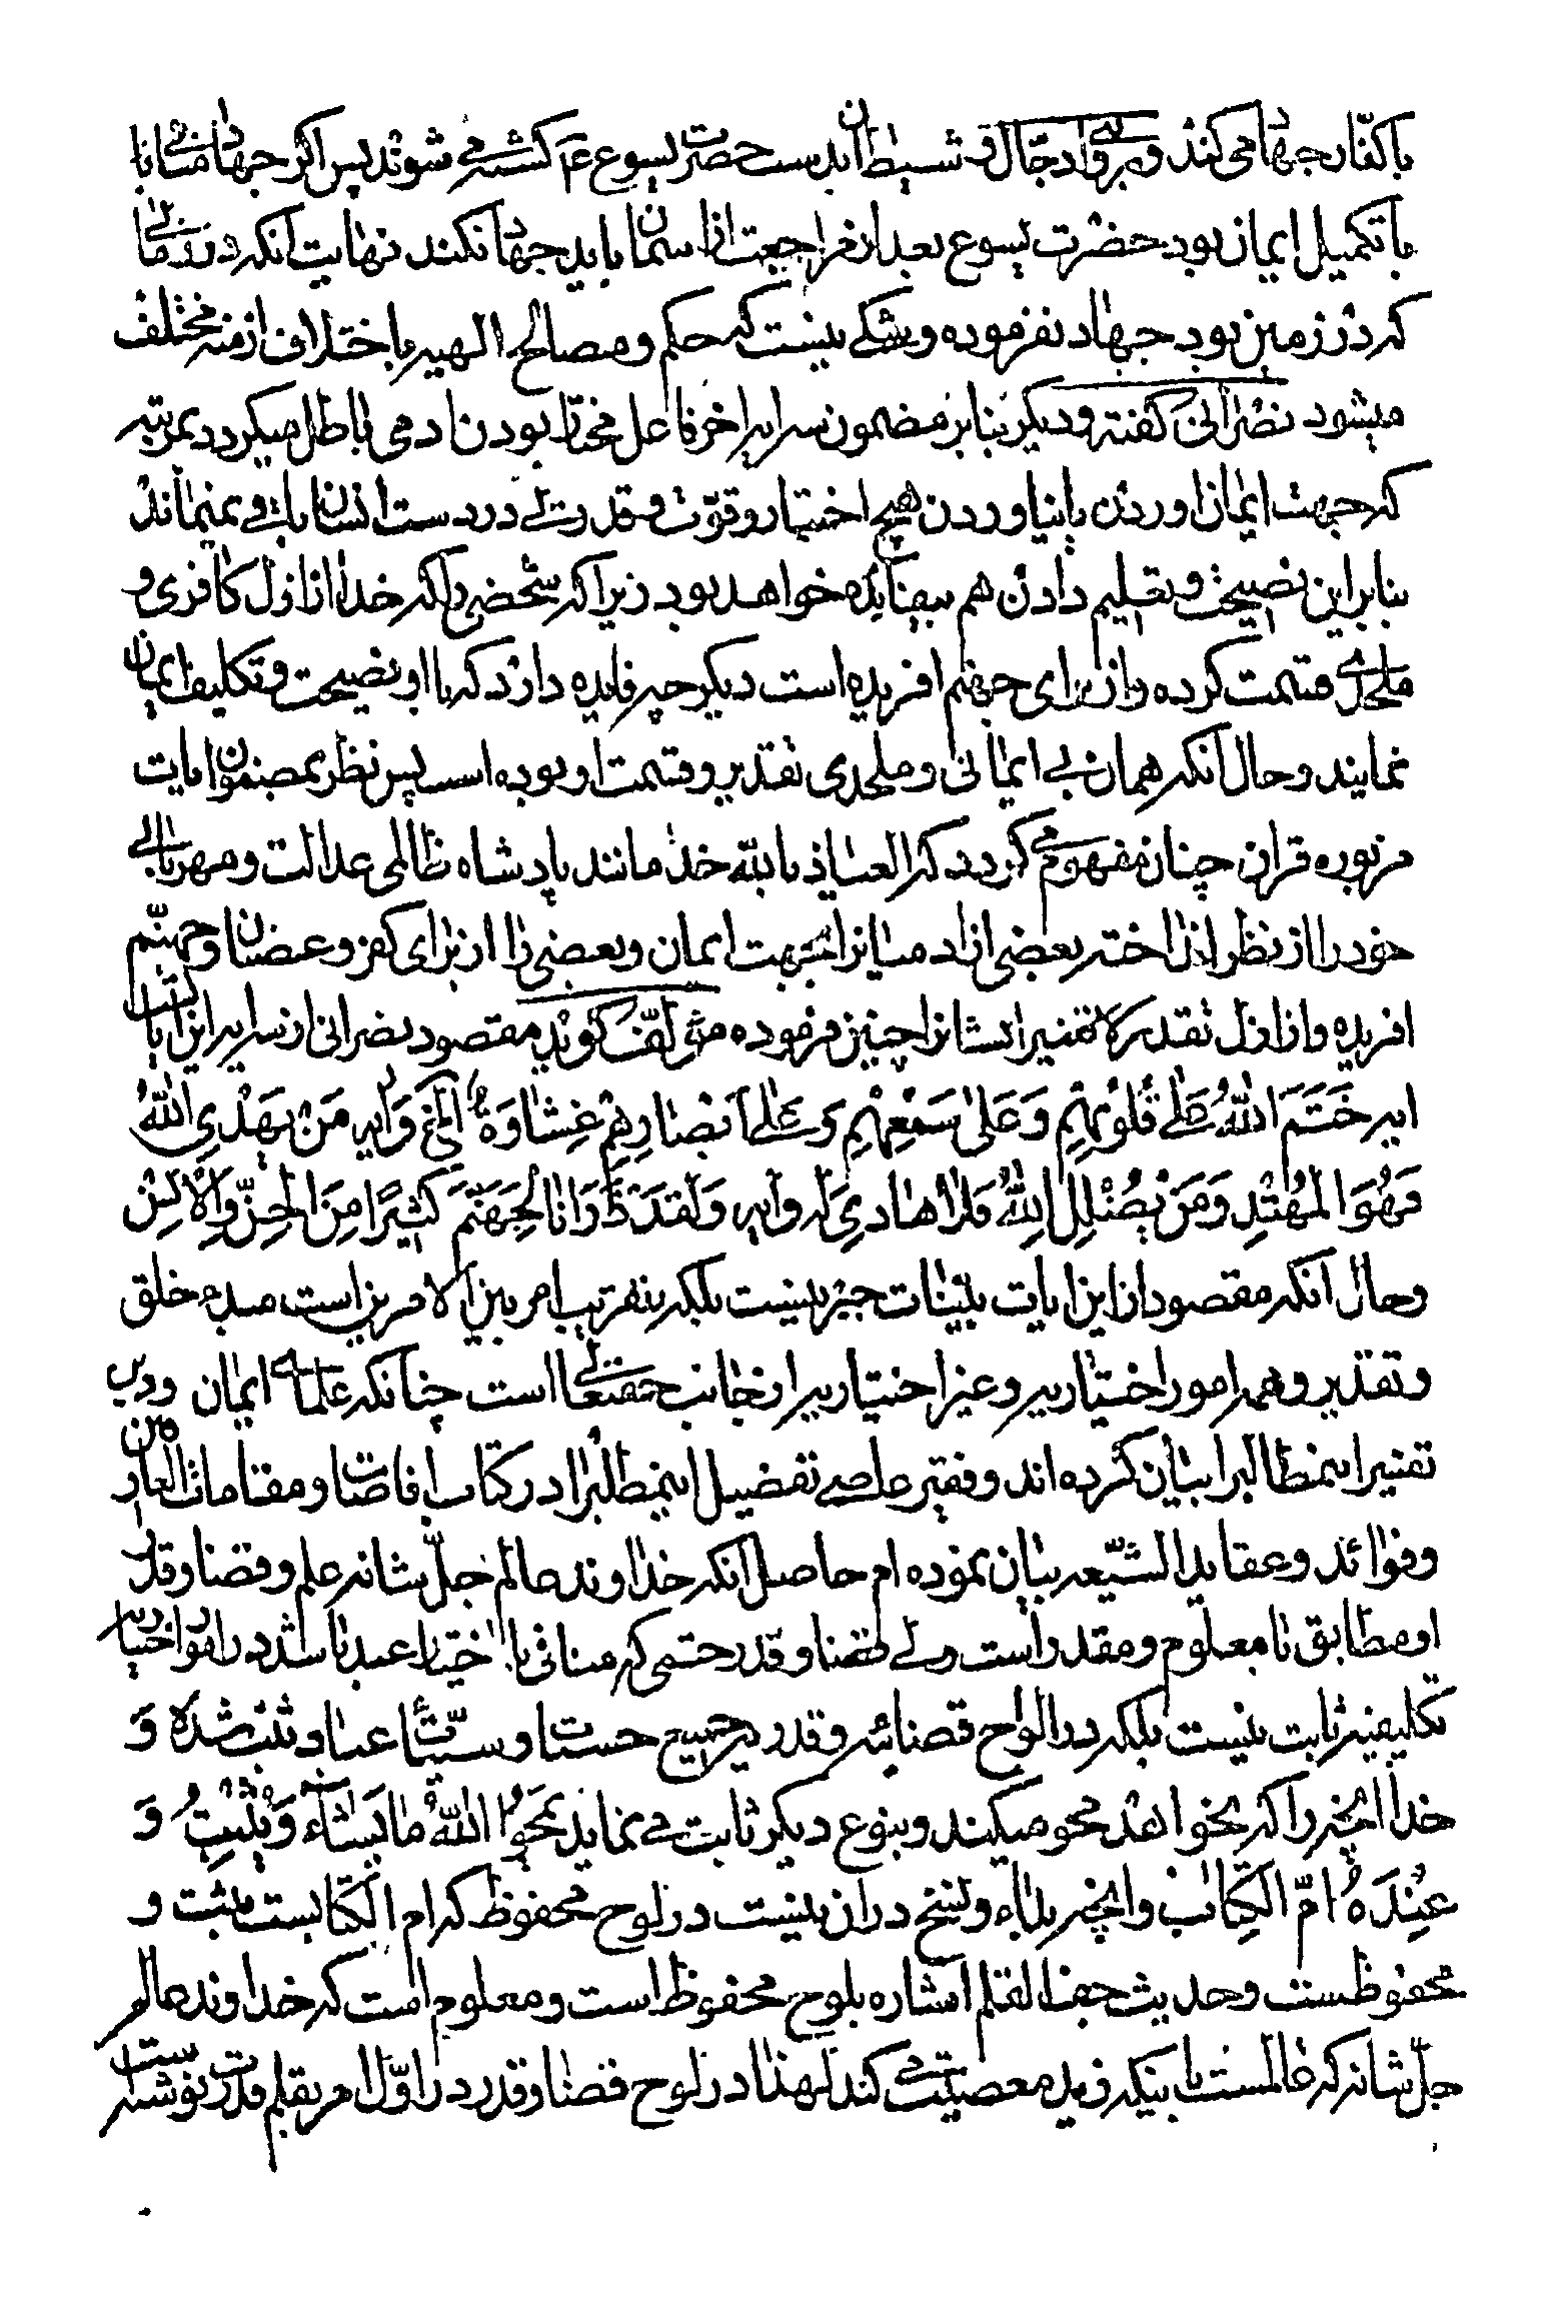 با کفّار جهاد می کند و پیروا دجّال و شیطان بدست حضرت یسوع ع کشته می شوند پس اکر جهاد منافی با
با تکمیل ایمان بود حضرت یسوع بعد از مراجعت از اسمان باید جهاد نکند نهایت انکه در زمانی
که در زمین بود جهاد نفرموده و شکی نیست که حکم و مصالح الهیه باختلاف ازمنه مختلف
میشود نصرانی کفته و دیکر بنابر مضمون سرایر اخر فاعل مختار بودن ادمی باطل میکردد بمرتبه
که جهت ایمان اوردن یا نیاوردن هیچ اختیار و قوّت و قدرتی در دست انسان باقی نمیماند
بنابراین نصیحت و تعلیم دادن هم بیفایده خواهد بود زیرا که شخصی را که خدا از ازل کافری و
ملحدی قسمت کرده و از برای جهنم افریده است دیکر چه فایده دارد که با او نصیحت و تکلیف ایمان
نمایند و حال انکه همان بی ایمانی و ملحدی تقدیر و قسمت او بوده است پس نظر بمضمون ایات
مزبوره قران چنان مفهوم می کردد که العیاذ بالله خدا مانند پادشاه ظالمی عدالت و مهربانی
خود را از نظر انداخته بعضی از ادمیانرا بجهت ایمان و بعضی را از برای کفر و عصیان و جهنّم
افریده و از ازل تقدیر لا تغییر ایشانرا چنین فرموده مؤلّف کوید مقصود نصرانی از سرایر این ایات
ایه خَتَمَ اللهُ عَلٰی قُلُوبِهِم وَعَلٰی سَمعِهِم وَعَلٰی اَبْصَارِهِمْ غِشَاوَةٌ الخ وَایه مَنْ یَهْدِی اللهُ
فَهُوَ المُهْتَدِ وَمَنْ یُضْلِلِ اللهُ فَلٰا هَادِیَ له وایه وَلَقَدْ ذَرَانَا لِجَهَنَّمَ کَثِیرًا مِنَ الجِنِّ وَالْاِنْسِ
وحال انکه مقصود از این ایات بیّنات جبر نیست بلکه بتقریب امر بین الامرین است مبدء خلق
و تقدیر و همه امور اختیاریه و غیر اختیاریه از جانب حقتعالی است چنانکه علمای ایمان و دین
تفسیر اینمطالب را بیان کرده اند و فقیر تفضیل اینمطلب را در کتاب افاضات و مقامات العارفین
و فوائد و عقاید الشّیعه بیان نموده ام حاصل انکه خداوند عالم جلّ شانه علم و قضا و قدر
او مطابق با معلوم و مقدر است ولی قضا و قدر حتمی که منافی با اختیار عبد باشد در امور اختیاریه
تکلیفیه ثابت نیست بلکه در الواح قضائیه و قدریه جمیع حسنات و سیّئات عباد ثبت شده وَ
خدا انچه را که بخواهد محو میکند و بنوع دیکر ثابت می نماید یَمحُوا اللهُ مٰا یَشٰاءُ وَیُثْبِتُ وَ
عِنْدَهُ امّ الکِتٰاب وانچه بداء و نسخ دران نیست در لوح محفوظ که ام الکتابست مثبت و
محفوظست و حدیث جف القلم اشاره بلوح محفوظ است و معلوم است که خداوند عالم
جلّ شانه که عالمست باینکه زید معصیت می کند لهذا در لوح قضا و قدر در اوّل امر بقلم قدرت نوشته است